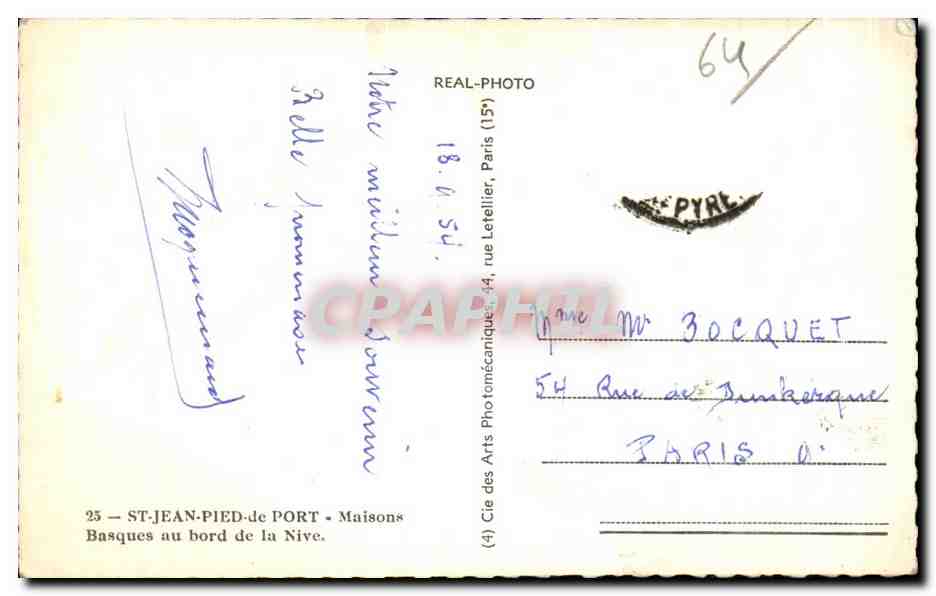 64
REAL-PHOTO
18. 4. 54.
Notre meilleur souvenir
Belle
PYRE.
CPAPHIL
Mme Mr BOCQUET
54 Rue de Dunkerque
PARIS
(4) Cie des Arts Photomécaniques, 44, rue Letellier, Paris (15e)
25 — ST-JEAN-PIED-de PORT - Maisons
Basques au bord de la Nive.